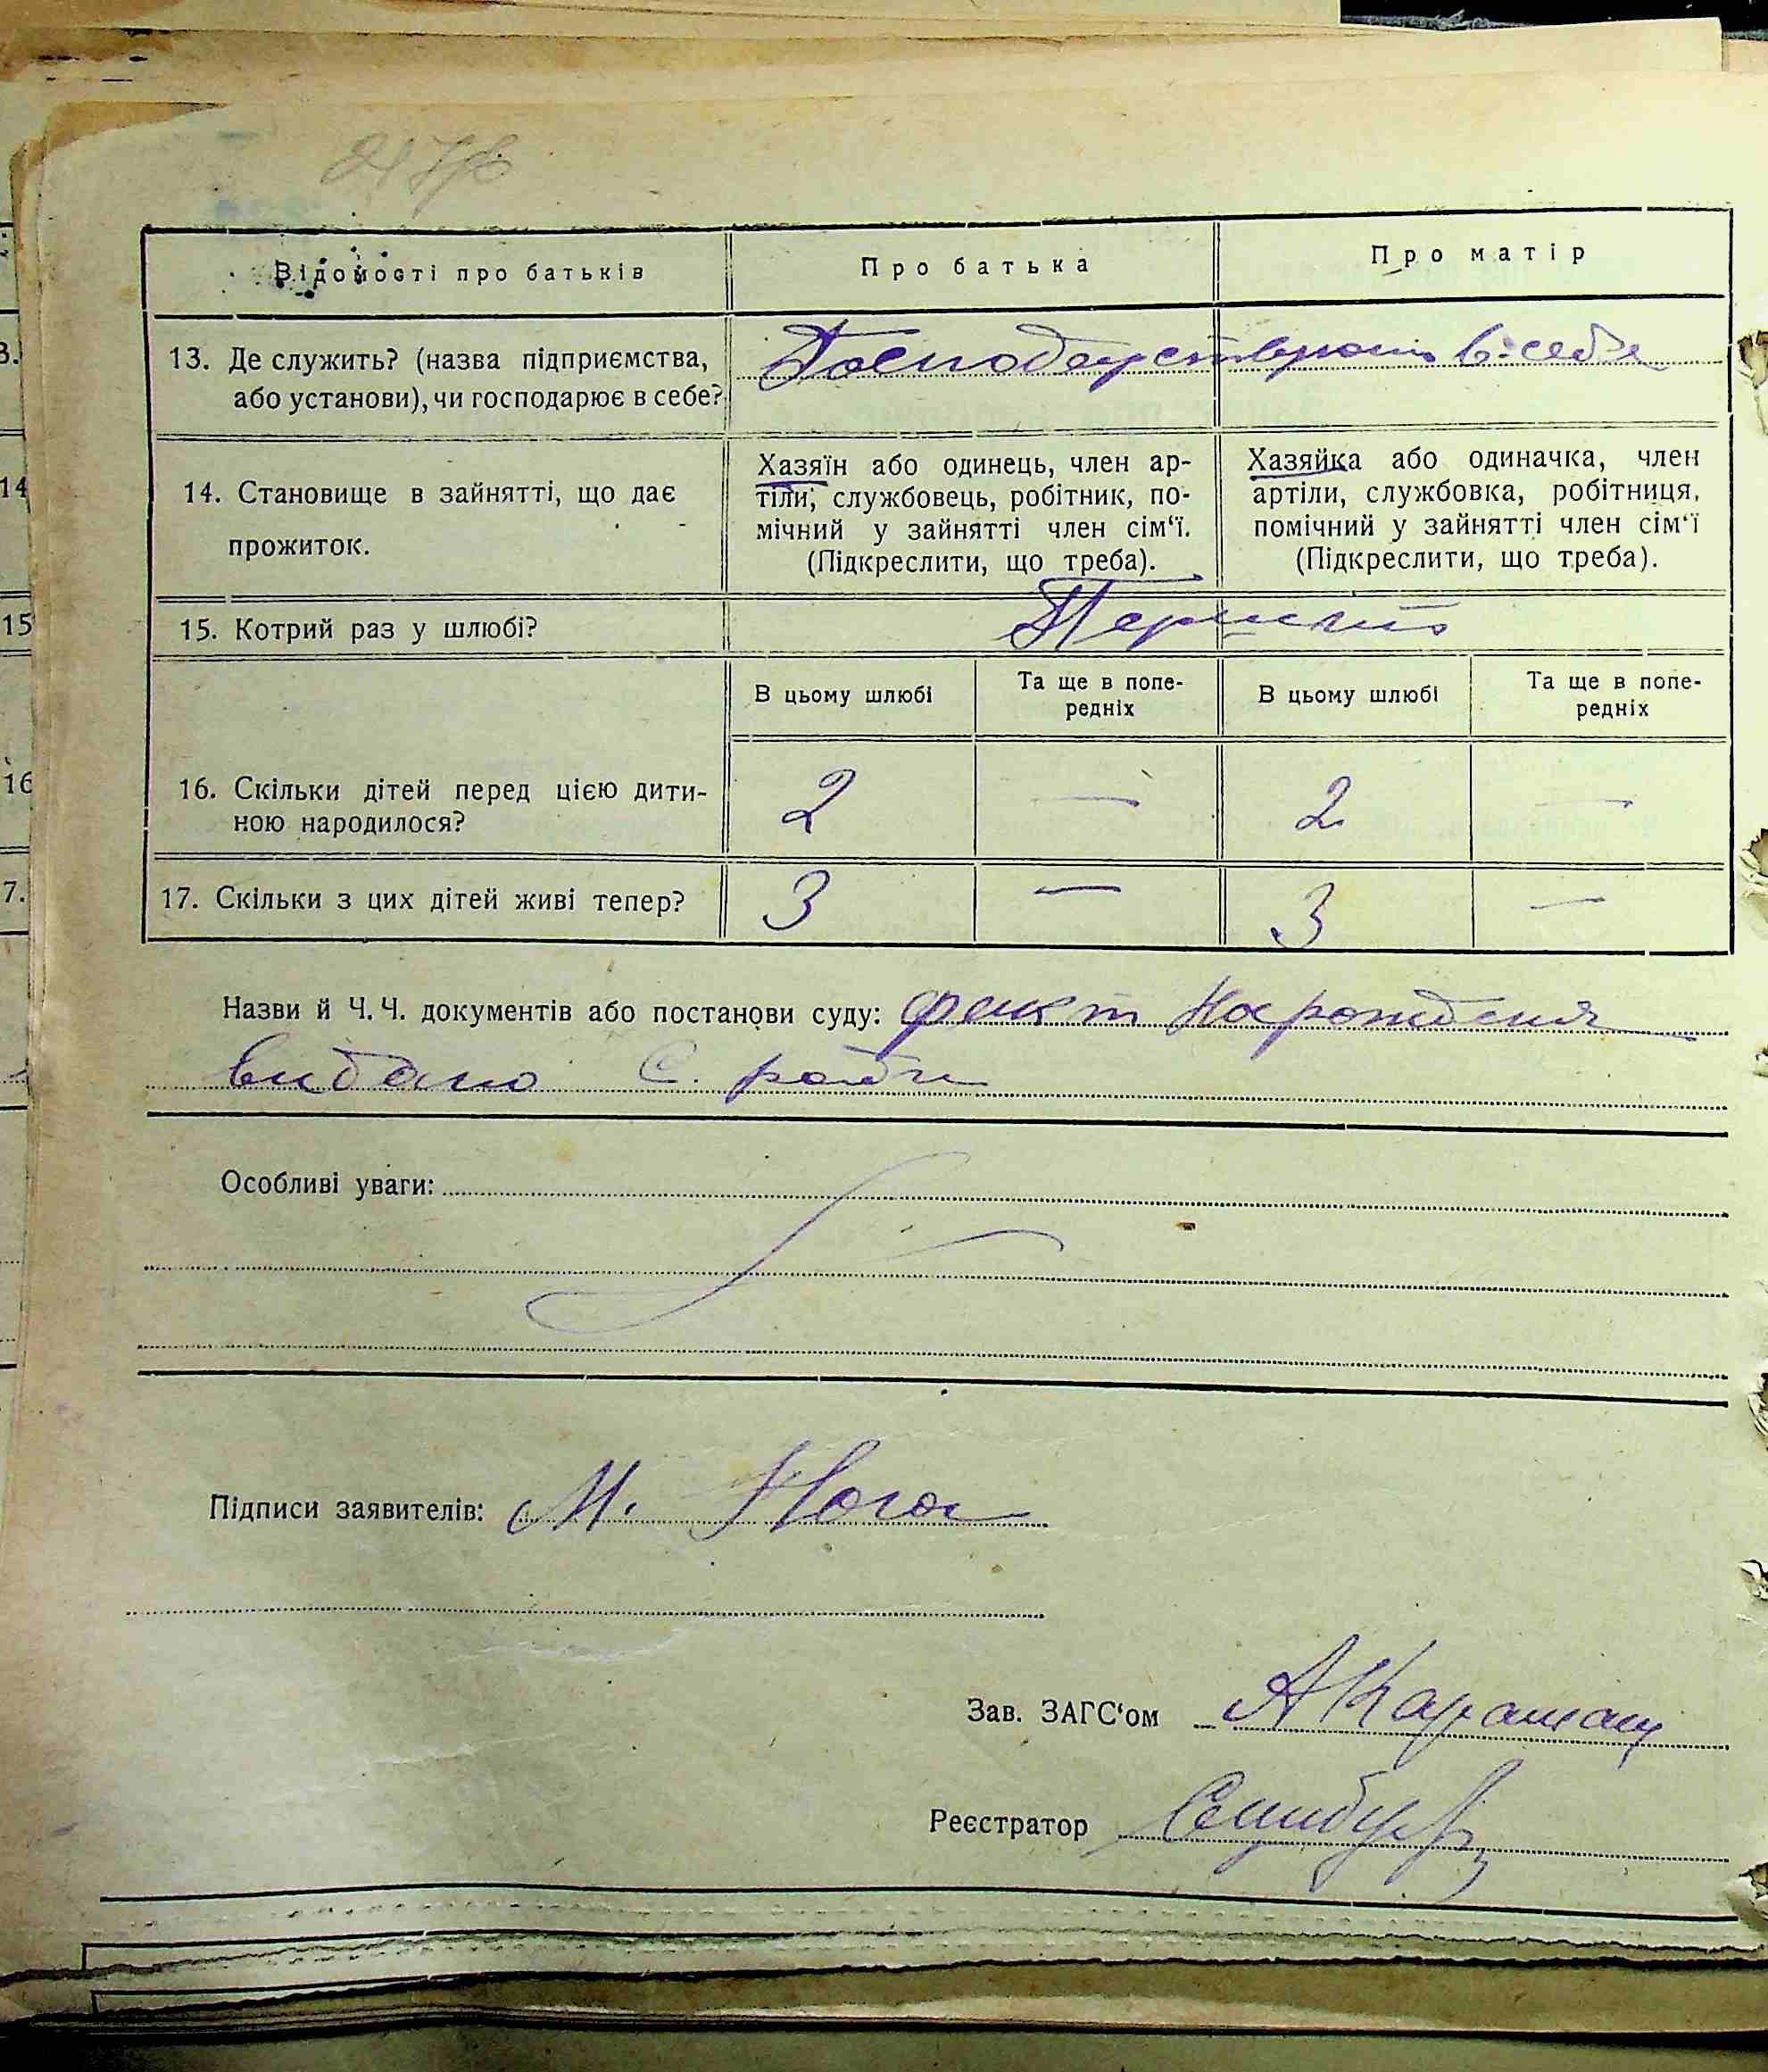 Відомості про батьків
Про батька
Про матір
13. Де служить? (назва підприємства, або установи), чи господарює в себе?
Господарствують в себе
14. Становище в зайнятті, що дає прожиток.
Хазяїн або одинець, член ар-
тіли, службовець, робітник, по-
мічний у зайнятті член сім‘ї.
(Підкреслити, що треба).
Хазяйка або одиначка, член
артіли, службовка, робітниця,
помічний у зайнятті член сім‘ї
(Підкреслити, що треба).
15. Котрий раз у шлюбі?
Перший
В цьому шлюбі
Та ще в попе-
редніх
В цьому шлюбі
Та ще в попе-
редніх
16. Скільки дітей перед цією дити-
ною народилося?
2 — 2 —
17. Скільки з цих дітей живі тепер?
3 — 3 —
Назви й Ч. Ч. документів або постанови суду: факт нарождения
видано С. радою
Особливі уваги:
Підписи заявителів: М. Нога
Зав. ЗАГС‘ом
Реєстратор
13.
14
15
16
7.